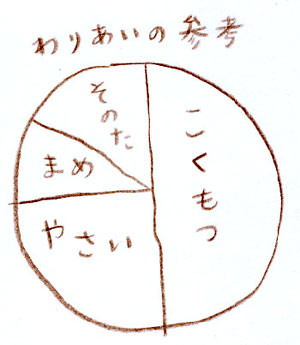 わりあいの参考
こくもつ
やさい
まめ
そのた